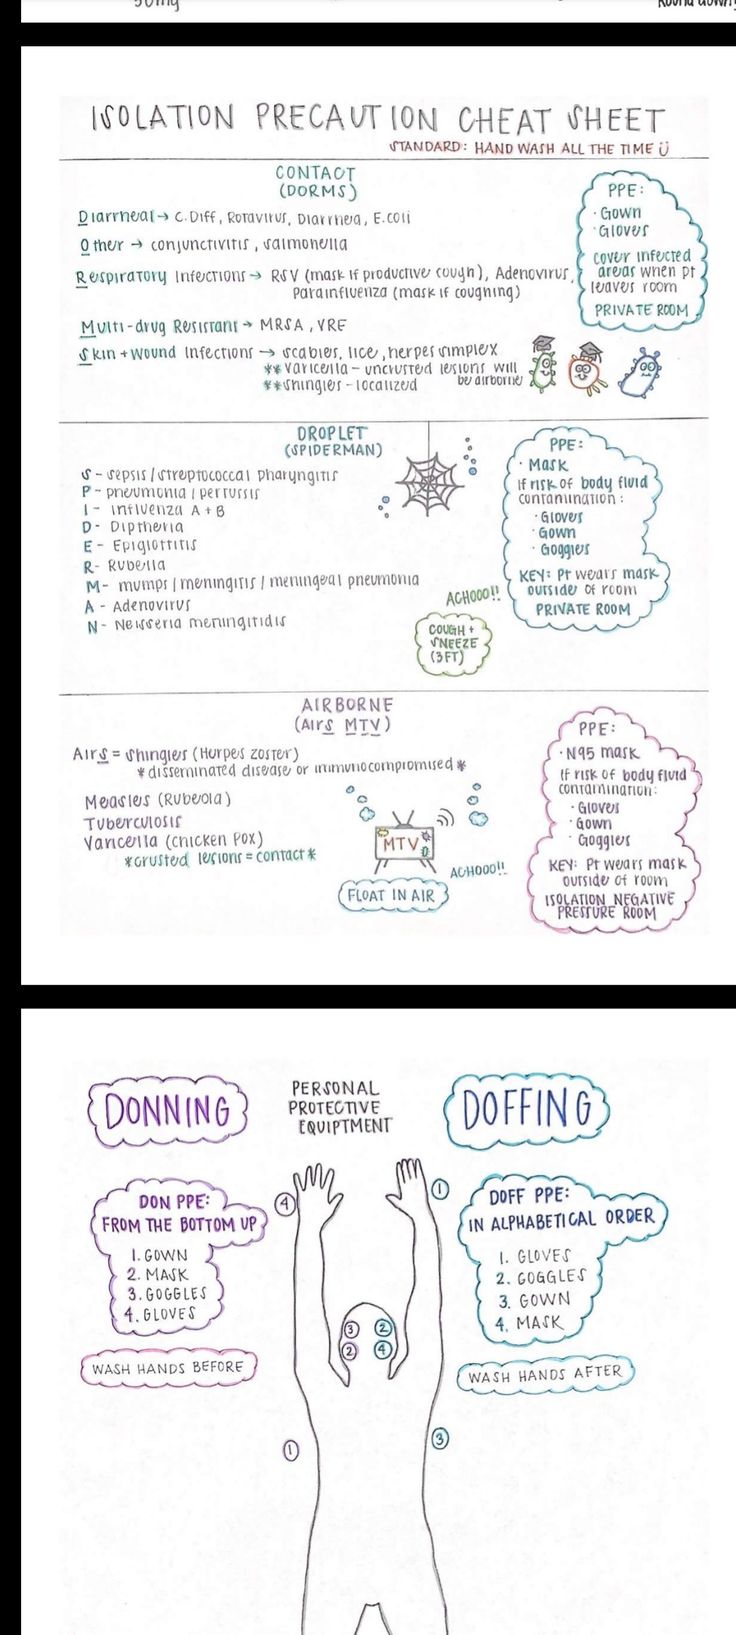 50mg
ISOLATION PRECAUTION CHEAT SHEET
STANDARD: HAND WASH ALL THE TIME
CONTACT
(DORMS)
Diarrheal → C.Diff, Rotavirus, Diarrhea, E.coli
Other → conjunctivitis, salmonella
Respiratory Infections → RSV (mask if productive cough), Adenovirus,
Parainfluenza (mask if coughing)
Multi-drug Resistant → MRSA, VRE
Skin + Wound Infections → scabies, lice, herpes simplex
**varicella - uncrusted lesions will
be airborne
**shingles - localized
PPE:
· Gown
· Gloves
cover infected
areas when pt
leaves room
PRIVATE ROOM
DROPLET
(SPIDERMAN)
S - sepsis / streptococcal pharyngitis
P - pneumonia / pertussis
I - Influenza A + B
D - Diptheria
E - Epiglottitis
R - Rubella
M - mumps / meningitis / meningeal pneumonia
A - Adenovirus
N - Neisseria meningitidis
ACHOOO!!
COUGH +
SNEEZE
(3FT)
PPE:
· Mask
If risk of body fluid
contamination:
· Gloves
· Gown
· Goggles
KEY: Pt wears mask
outside of room
PRIVATE ROOM
AIRBORNE
(AIRS MTV)
AIRS = Shingles (Herpes zoster)
*disseminated disease or immunocompromised*
Measles (Rubeola)
Tuberculosis
Varicella (Chicken Pox)
*crusted lesions = contact*
MTV
ACHOOO!!
FLOAT IN AIR
PPE:
· N95 mask
If risk of body fluid
contamination:
· Gloves
· Gown
· Goggles
KEY: Pt wears mask
outside of room
ISOLATION NEGATIVE
PRESSURE ROOM
DONNING
PERSONAL
PROTECTIVE
EQUIPTMENT
DOFFING
DON PPE:
FROM THE BOTTOM UP
1. GOWN
2. MASK
3. GOGGLES
4. GLOVES
WASH HANDS BEFORE
4
1
3
2
2
4
1
3
DOFF PPE:
IN ALPHABETICAL ORDER
1. GLOVES
2. GOGGLES
3. GOWN
4. MASK
WASH HANDS AFTER